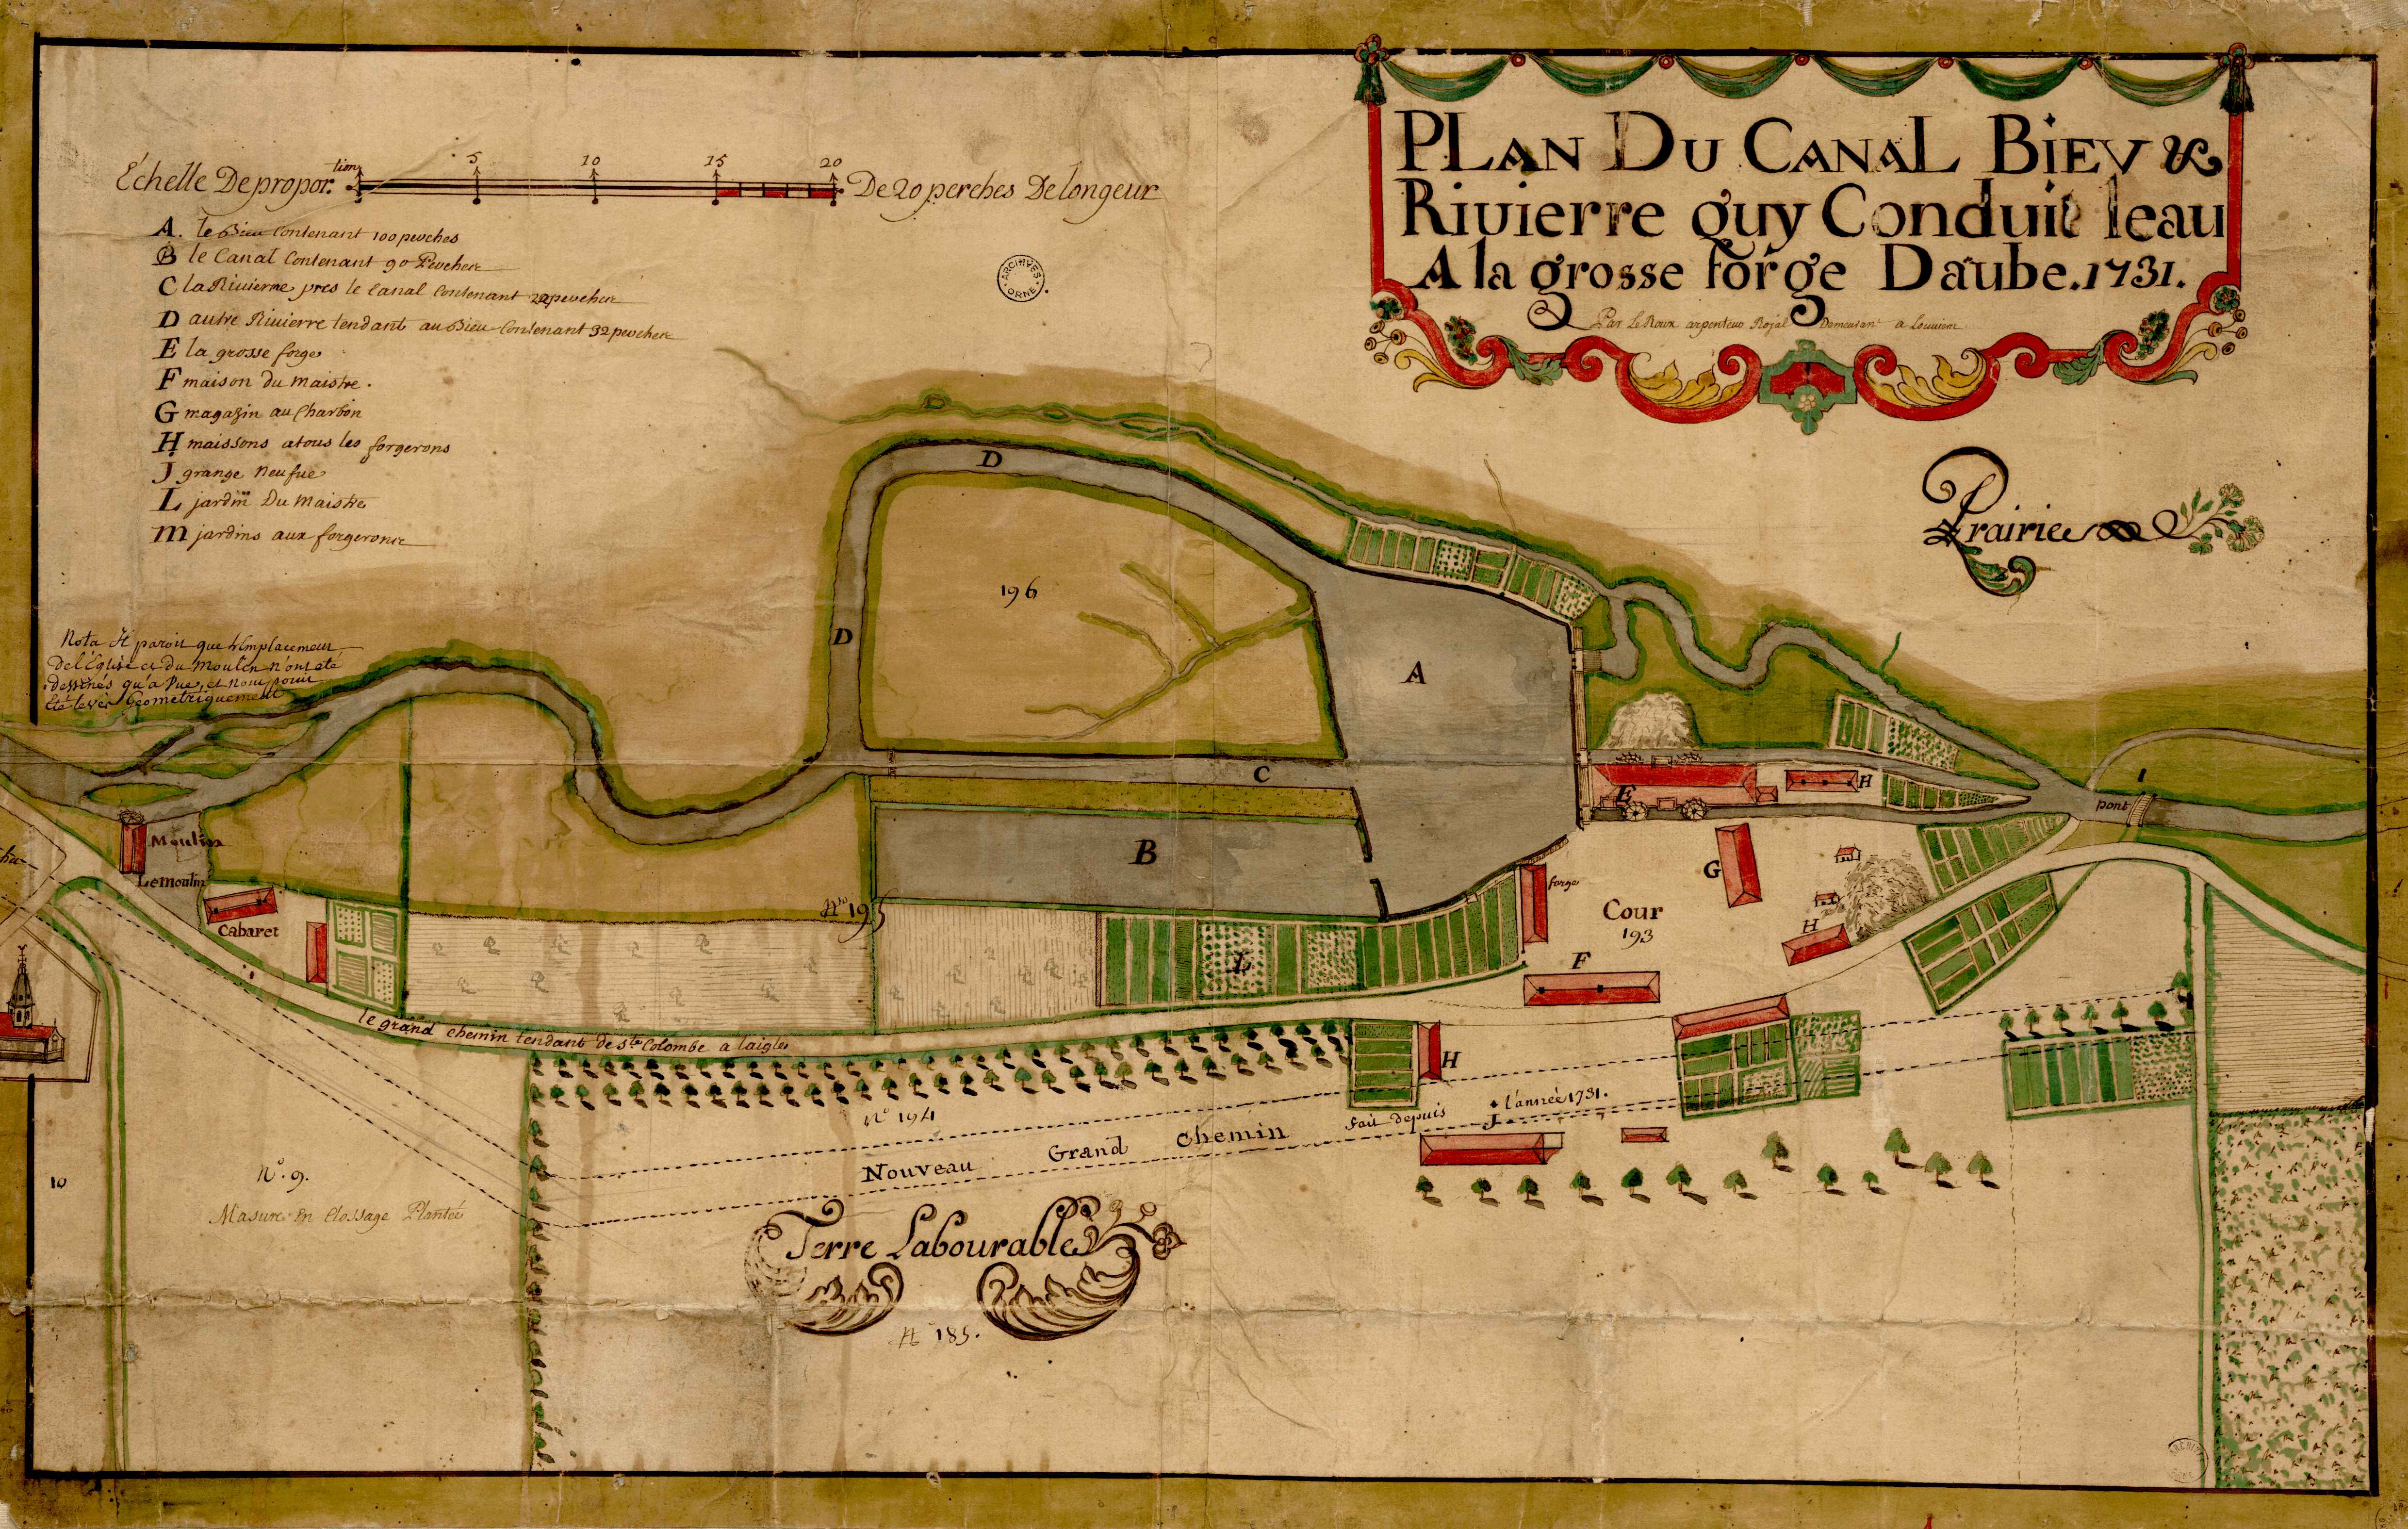 PLAN DU CANAL BIEV &
Rivierre quy Conduit leau
A la grosse forge Daube. 1731.
Par LeRoux arpenteur Rojal Demeurant a Louviere
Échelle De propor.tion
5 10 15 20
De 20 perches De longeur
A. le Bieu Contenant 100 perches
B le Canal Contenant 90 Perches
C la Rivierre pres le Canal Contenant 22 perches
D autre Rivierre tendant au Bieu Contenant 92 perches
E la grosse forge
F maison du maistre.
G magazin au Charbon
H maissons a tous les forgerons
J grange neufue
L jardin Du maistre
m jardins aux forgerons
ARCHIVES ORNE
Prairie
Nota Il paroit que l'emplacement
De l'Eglise et du moulin n'ont été
dessinés qu'a Vue, et non point
été levés Geometriquement
D
D
196
A
C
B
E
H
pont
Moulin
Lemoulin
Cabaret
N° 195
forge
G
Cour
193
H
L
F
le grand chemin tendant de Ste Colombe a laigle
H
N° 194
Nouveau Grand Chemin fait depuis l'année 1731.
J
N°. 9.
Masure En Clossage Plantée
10
Terre Labourable
N° 185.